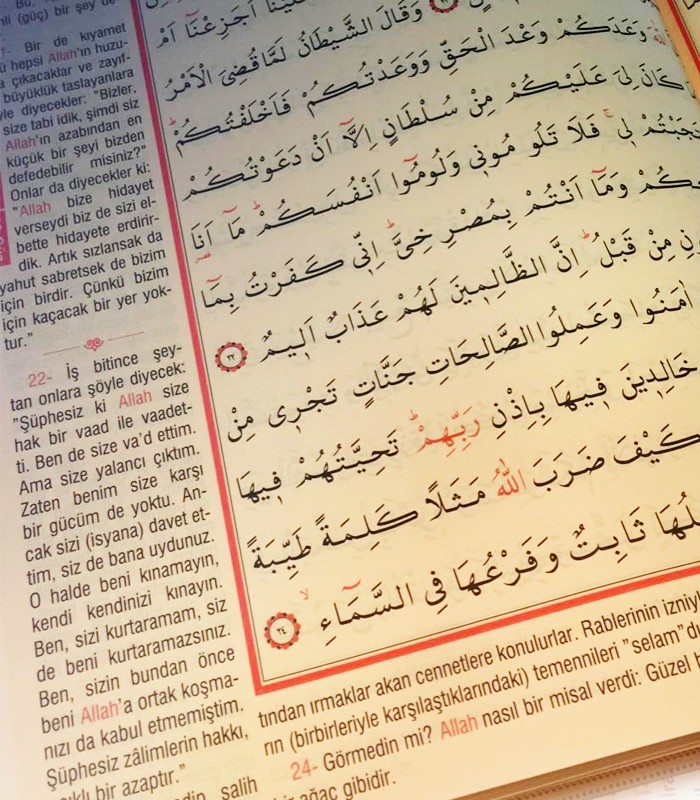 Bu,
(güç) bir şey de
Bir de kıyamet
hepsi Allah'ın huzu-
çıkacaklar ve zayıf-
büyüklük taslayanlara
diyecekler: "Bizler,
size tabi idik, şimdi siz
Allah'ın azabından en
küçük bir şeyi bizden
defedebilir misiniz?"
Onlar da diyecekler ki:
"Allah bize hidayet
verseydi biz de sizi el-
bette hidayete erdirir-
dik. Artık sızlansak da
yahut sabretsek de bizim
için birdir. Çünkü bizim
için kaçacak bir yer yok-
tur."
22- İş bitince şey-
tan onlara şöyle diyecek:
"Şüphesiz ki Allah size
hak bir vaad ile vaadet-
ti. Ben de size va'd ettim.
Ama size yalancı çıktım.
Zaten benim size karşı
bir gücüm de yoktu. An-
cak sizi (isyana) davet et-
tim, siz de bana uydunuz.
O halde beni kınamayın,
kendi kendinizi kınayın.
Ben, sizi kurtaramam, siz
de beni kurtaramazsınız.
Ben, sizin bundan önce
beni Allah'a ortak koşma-
nızı da kabul etmemiştim.
Şüphesiz zâlimlerin hakkı,
bir azaptır."
salih
اَجَزِعْنَٓا اَمْ
وَقَالَ الشَّيْطَانُ لَمَّا قُضِيَ الْاَمْرُ
وَعَدَكُمْ وَعْدَ الْحَقِّ وَوَعَدْتُكُمْ فَاَخْلَفْتُكُمْ
كَانَ لِيَ عَلَيْكُمْ مِنْ سُلْطَانٍ اِلَّٓا اَنْ دَعَوْتُكُمْ
لِي فَلَا تَلُومُونِي وَلُومُٓوا اَنْفُسَكُمْ مَٓا اَنَا
وَمَٓا اَنْتُمْ بِمُصْرِخِيَّ اِنِّي كَفَرْتُ بِمَٓا
مِنْ قَبْلُ اِنَّ الظَّالِمِينَ لَهُمْ عَذَابٌ اَلِيمٌ ٢٢
اٰمَنُوا وَعَمِلُوا الصَّالِحَاتِ جَنَّاتٍ تَجْرِي مِنْ
خَالِدِينَ فِيهَا بِاِذْنِ رَبِّهِمْ تَحِيَّتُهُمْ فِيهَا
كَيْفَ ضَرَبَ اللّٰهُ مَثَلًا كَلِمَةً طَيِّبَةً
ثَابِتٌ وَفَرْعُهَا فِي السَّمَٓاءِ ٢٤
tından ırmaklar akan cennetlere konulurlar. Rablerinin izniyl
rın (birbirleriyle karşılaştıklarındaki) temennileri "selam" du
24- Görmedin mi? Allah nasıl bir misal verdi: Güzel
bir ağaç gibidir.